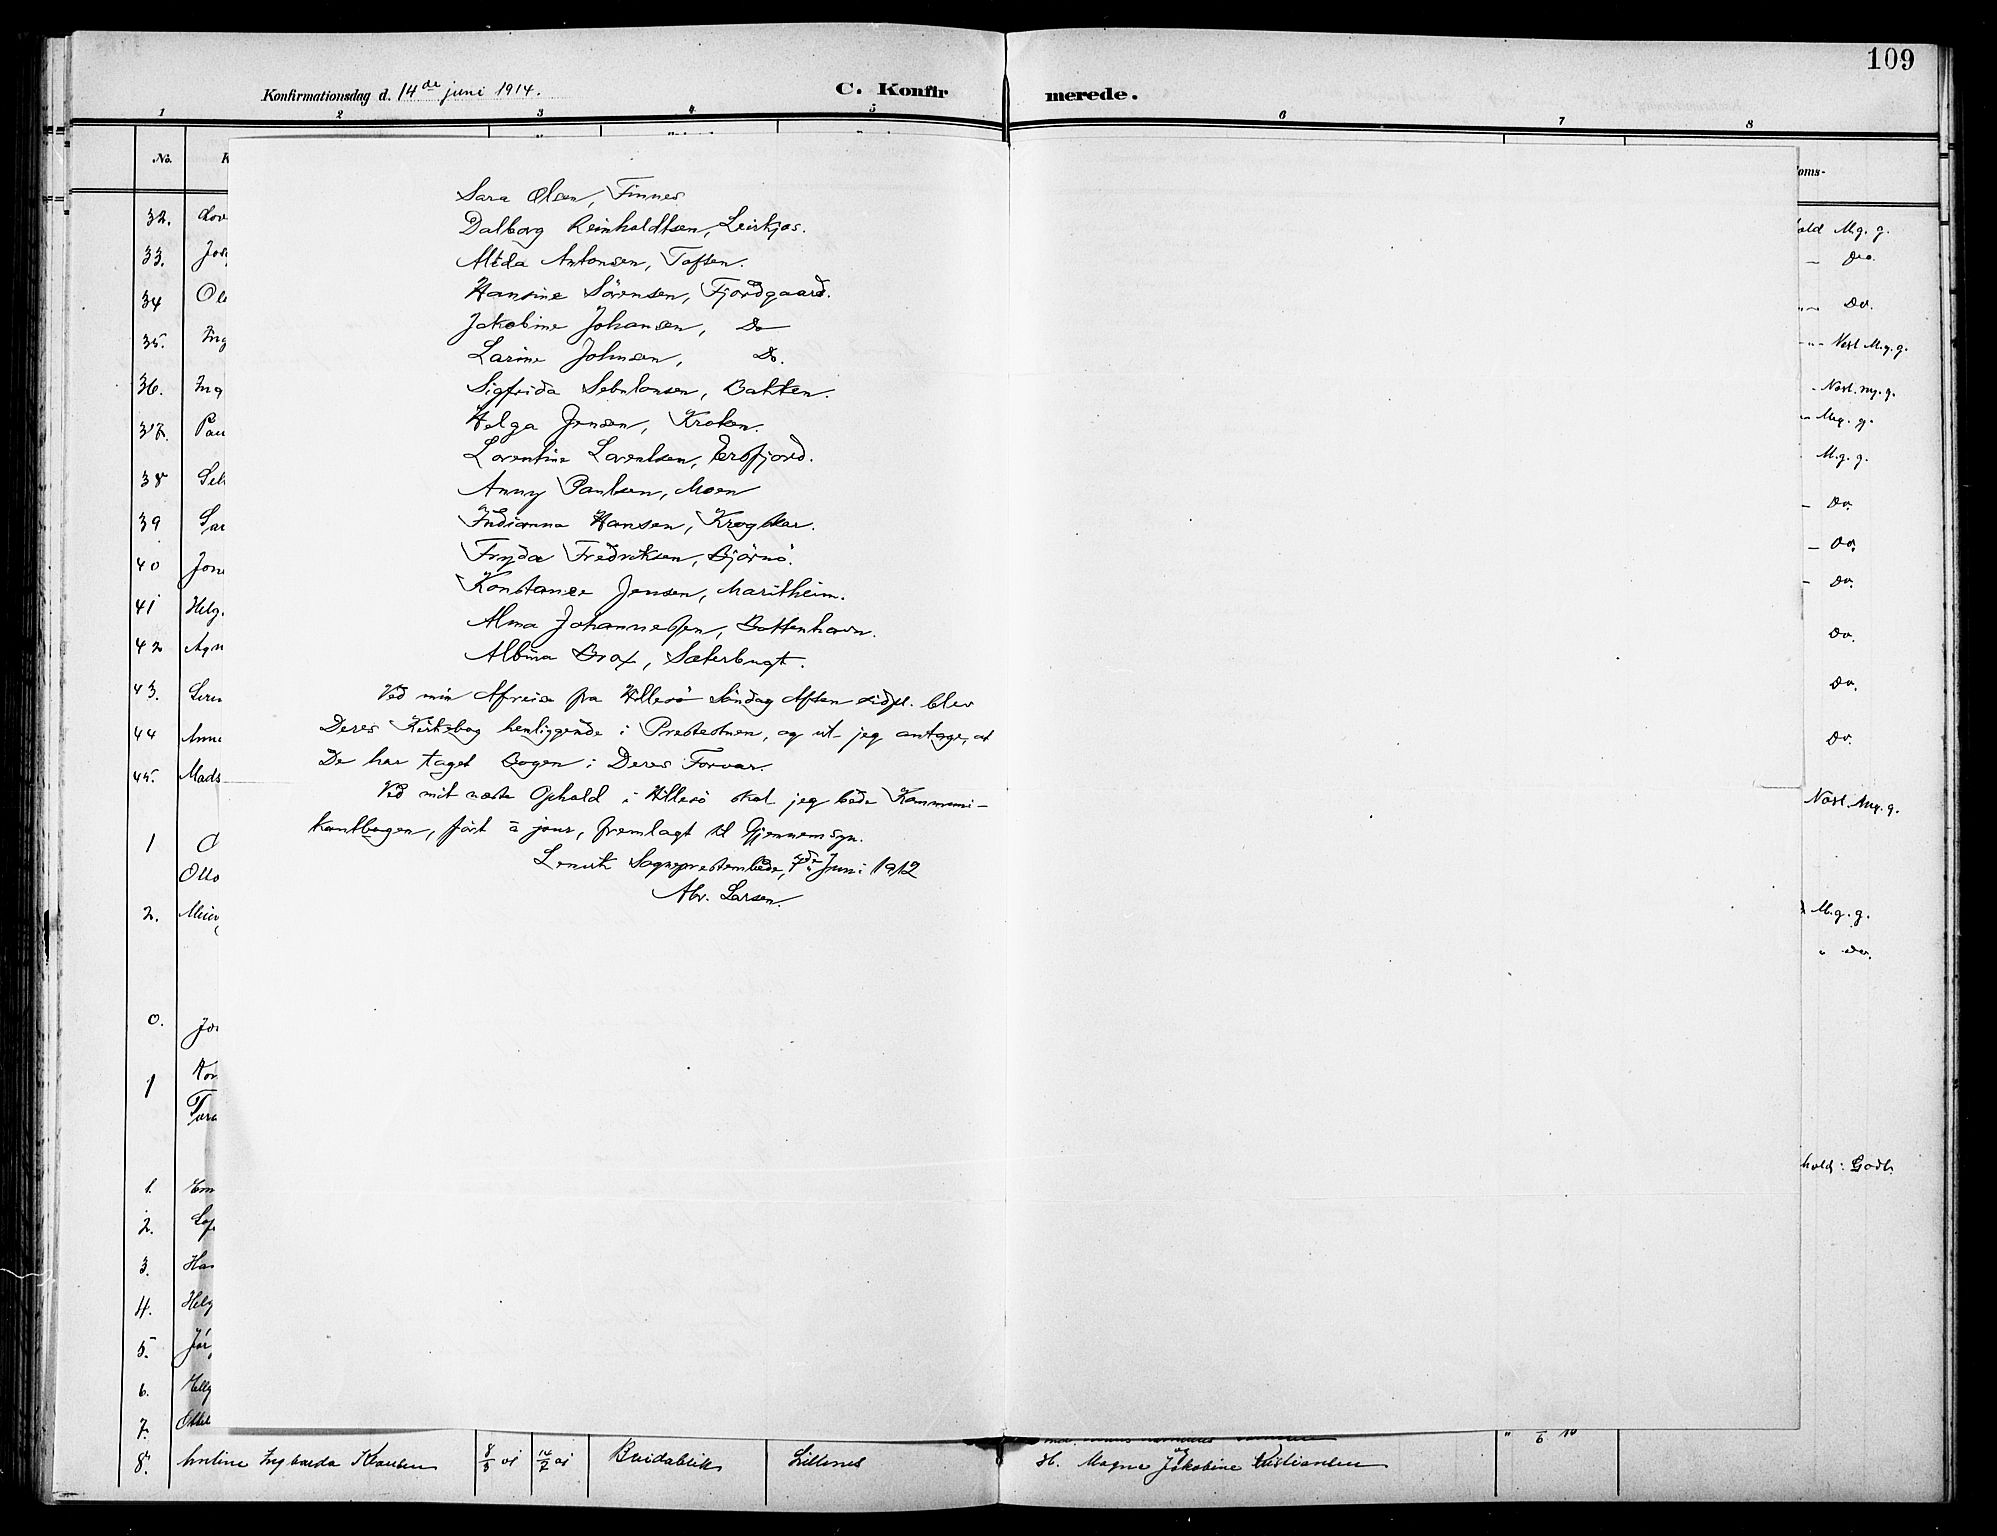 109
Konfirmationsdag d. 14de juni 1914.
C. Konfir merede.
1 2 3 4 5 6 7 8
No.
Sara Olsen, Finnes
Dalborg Reinholdtsen, Leirkjos.
Alida Antonsen, Toften.
Hansine Sörensen, Fjordgaard.
Jakobine Johansen, Do
Larine Johnsen, Do.
Sigfrida Sebulonsen, Bakken.
Helga Jensen, Kroken.
Lorentine Lorentsen, Ersfjord.
Anny Paulsen, Moen
Indianna Hansen, Krogskar.
Fryda Fredriksen, Björnö.
Konstance Jensen, Maritheim.
Alma Johannessen, Bottenhavn.
Albina Brox, Sæterbugt.
Ved min Afreise fra Hillesö Söndag Aften sidstl. blev
Deres Kirkebog henliggende i Prestestuen, og vil jeg antage, at
De har taget Bogen i Deres Forvar.
Ved mit næste Ophold i Hillesö skal jeg bede Kommuni-
kantbogen, fört à jour, fremlagt til Gjennemsyn.
Lenvik Sogneprestembede, 7de Juni 1912
Alv. Larsen.
32.
33.
34
35.
36.
37.
38
39
40
41
42
43.
44
45. Mads
1
Otto
2.
0.
1
1.
2.
3.
4.
5.
6.
7.
8. Ingvarda Klausen 8/3 01 14/7 01 Breidablik Lillenes H. Magne og Jakobine Kristiansen
old M.g.g.
Do.
Do.
Næst M.g.g.
Næst. mg.g.
Meg. g.
M.g.g.
Do.
Do.
Do.
Do.
Do.
Do.
Næst. Meg.g.
M.g.g.
" Do.
hold: Godt.